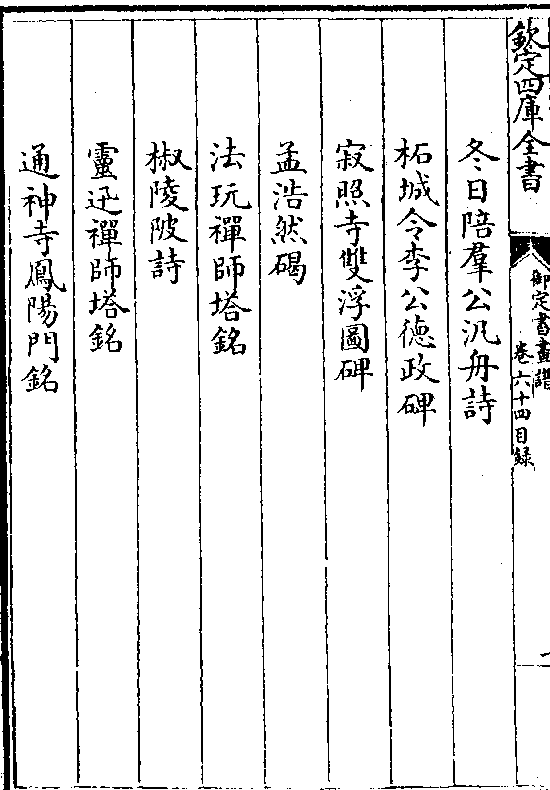 欽定四庫全書
御定書畫譜
卷六十四目録
冬日陪羣公汎舟詩
柘城令李公德政碑
寂照寺雙浮圖碑
孟浩然碣
法玩禪師塔銘
椒陵陂詩
靈迅禪師塔銘
通神寺鳳陽門銘